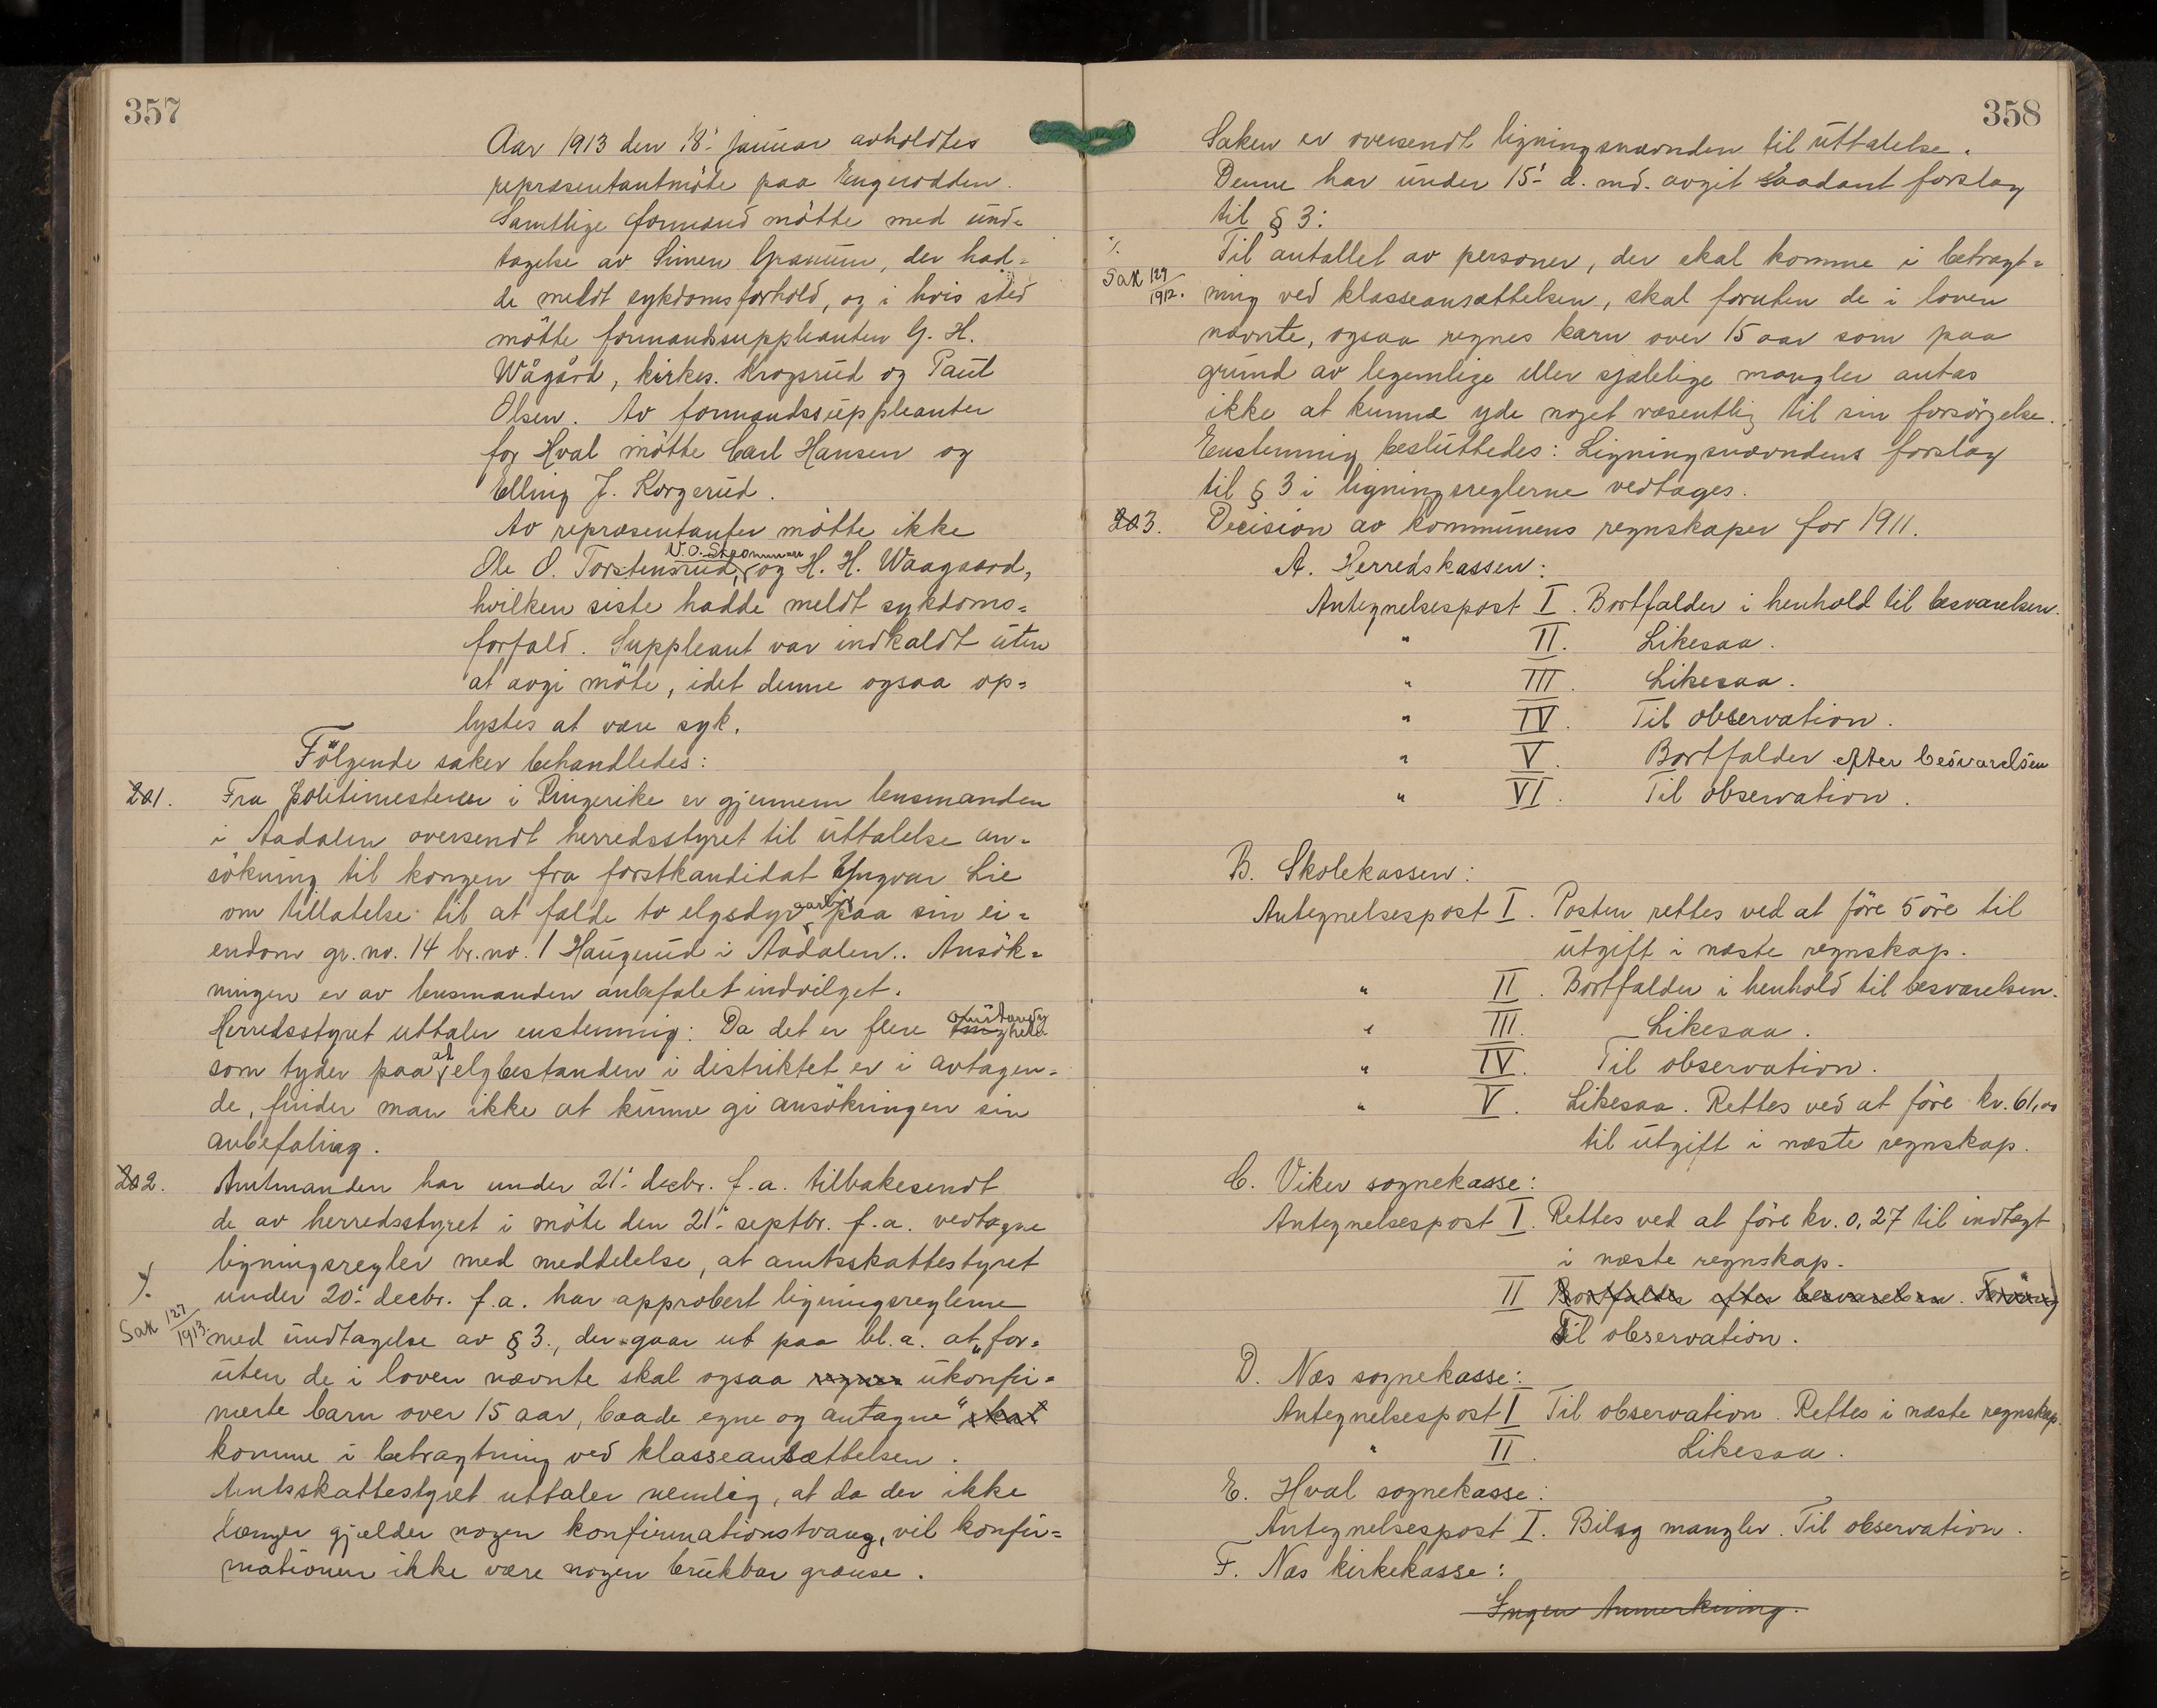 357
Aar 1913 den 18: januar avholdtes
repræsentantmöte paa Engerodden.
Samtlige formænd mötte med und=
tagelse av Simen Granum, der had=
de meldt sykdomsforhold, og i hvis sted
mötte formandssuppleanten G. H.
Wågård, kirkes. Krogsrud og Paul
Olsen. Av formandssuppleanter
for Hval mötte Carl Hansen og
Elling J. Korgerud.
Av repræsentanter mötte ikke
Ole O. Torstensrud, og H. H. Waagaard,
hvilken siste hadde meldt sykdoms=
forfald. Suppleant var indkaldt uten
at avgi möte, idet denne ogsaa op=
lystes at være syk.
Fölgende saker behandledes:
201. Fra politimesteren i Ringerike er gjennem lensmanden
i Aadalen oversendt herredsstyret til uttalelse an=
sökning til kongen fra forstkandidat Yngvar Lie
om tillatelse til at fælde to elgsdyr aarlig paa sin ei=
endom gr. no. 14 br. no. 1 Haugerud i Aadalen.. Ansök=
ningen er av lensmanden anbefalet indvilget.
Herredsstyret uttaler enstemmig: Da det er flere omstændigheter
som tyder paa at elgbestanden i distriktet er i avtagen=
de, finder man ikke at kunne gi ansökningen sin
anbefaling.
202. Amtmanden har under 21: decbr. f.a. tilbakesendt
de av herredsstyret i möte den 21: septbr. f.a. vedtagne
ligningsregler med meddelelse, at amtsskattestyret
under 20: decbr. f.a. har approbert ligningsreglerne
Sak 127/1913.
med undtagelse av § 3., der gaar ut paa bl.a. at „for=
uten de i loven nævnte skal ogsaa regnes ukonfir=
merte barn over 15 aar, baade egne og antagne" skal
komme i betragtning ved klasseansættelsen.
Amtsskattestyret uttaler nemlig, at da der ikke
længer gjælder nogen konfirmationstvang, vil konfir=
mationen ikke være nogen brukbar grænse.
358
Saken er oversendt ligningsnævnden til uttalelse.
Denne har under 15: d. md. avgit saadant forslag
til § 3:
Til antallet av personer, der skal komme i betragt=
Sak 129/1912.
ning ved klasseansættelsen, skal foruten de i loven
nævnte, ogsaa regnes barn over 15 aar som paa
grund av legemlige eller sjælelige mangler antas
ikke at kunne yde noget væsentlig til sin forsörgelse.
Enstemmig besluttedes: Ligningsnævndens forslag
til § 3 i ligningsreglerne vedtages.
203. Decision av kommunens regnskaper for 1911.
A. Herredskassen:
Antegnelsespost I. Bortfalder i henhold til besvarelsen.
" II. Likesaa.
" III. Likesaa.
" IV. Til observation.
" V. Bortfalder efter besvarelsen
" VI. Til observation.
B. Skolekassen:
Antegnelsespost I. Posten rettes ved at före 5 öre til
utgift i næste regnskap.
" II. Bortfalder i henhold til besvarelsen.
" III. Likesaa.
" IV. Til observation.
" V. Likesaa. Rettes ved at före kr. 61,00
til utgift i næste regnskap.
C. Viker sognekasse:
Antegnelsespost I. Rettes ved at före kr. 0,27 til indtægt
i næste regnskap.
II Bortfalder efter besvarelsen.
Til observation.
D. Næs sognekasse:
Antegnelsespost I Til observation. Rettes i næste regnskap.
" II. Likesaa.
E. Hval sognekasse:
Antegnelsespost I. Bilag mangler. Til observation.
F. Næs kirkekasse:
Ingen Anmerkning.